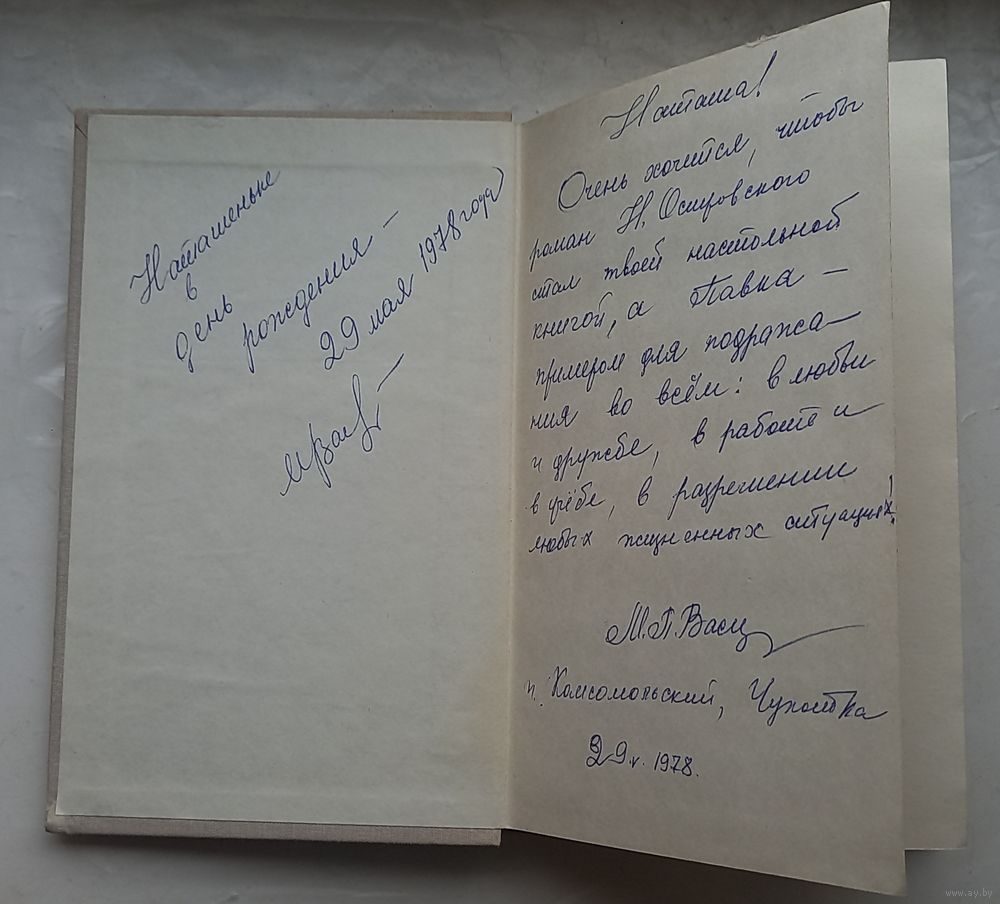 Наташеньке
в
день
рождения —
29 мая 1978 года
Наташа!
Очень хочится, чтобы
роман Н. Островского
стал твоей настольной
книгой, а Павка —
примером для подража—
ния во всём: в любви
и дружбе, в работе и
в учёбе, в разрешении
любых жизненных ситуациях!
М.П.
п. Комсомольский, Чукотка
29.v.1978.
www.ay.by